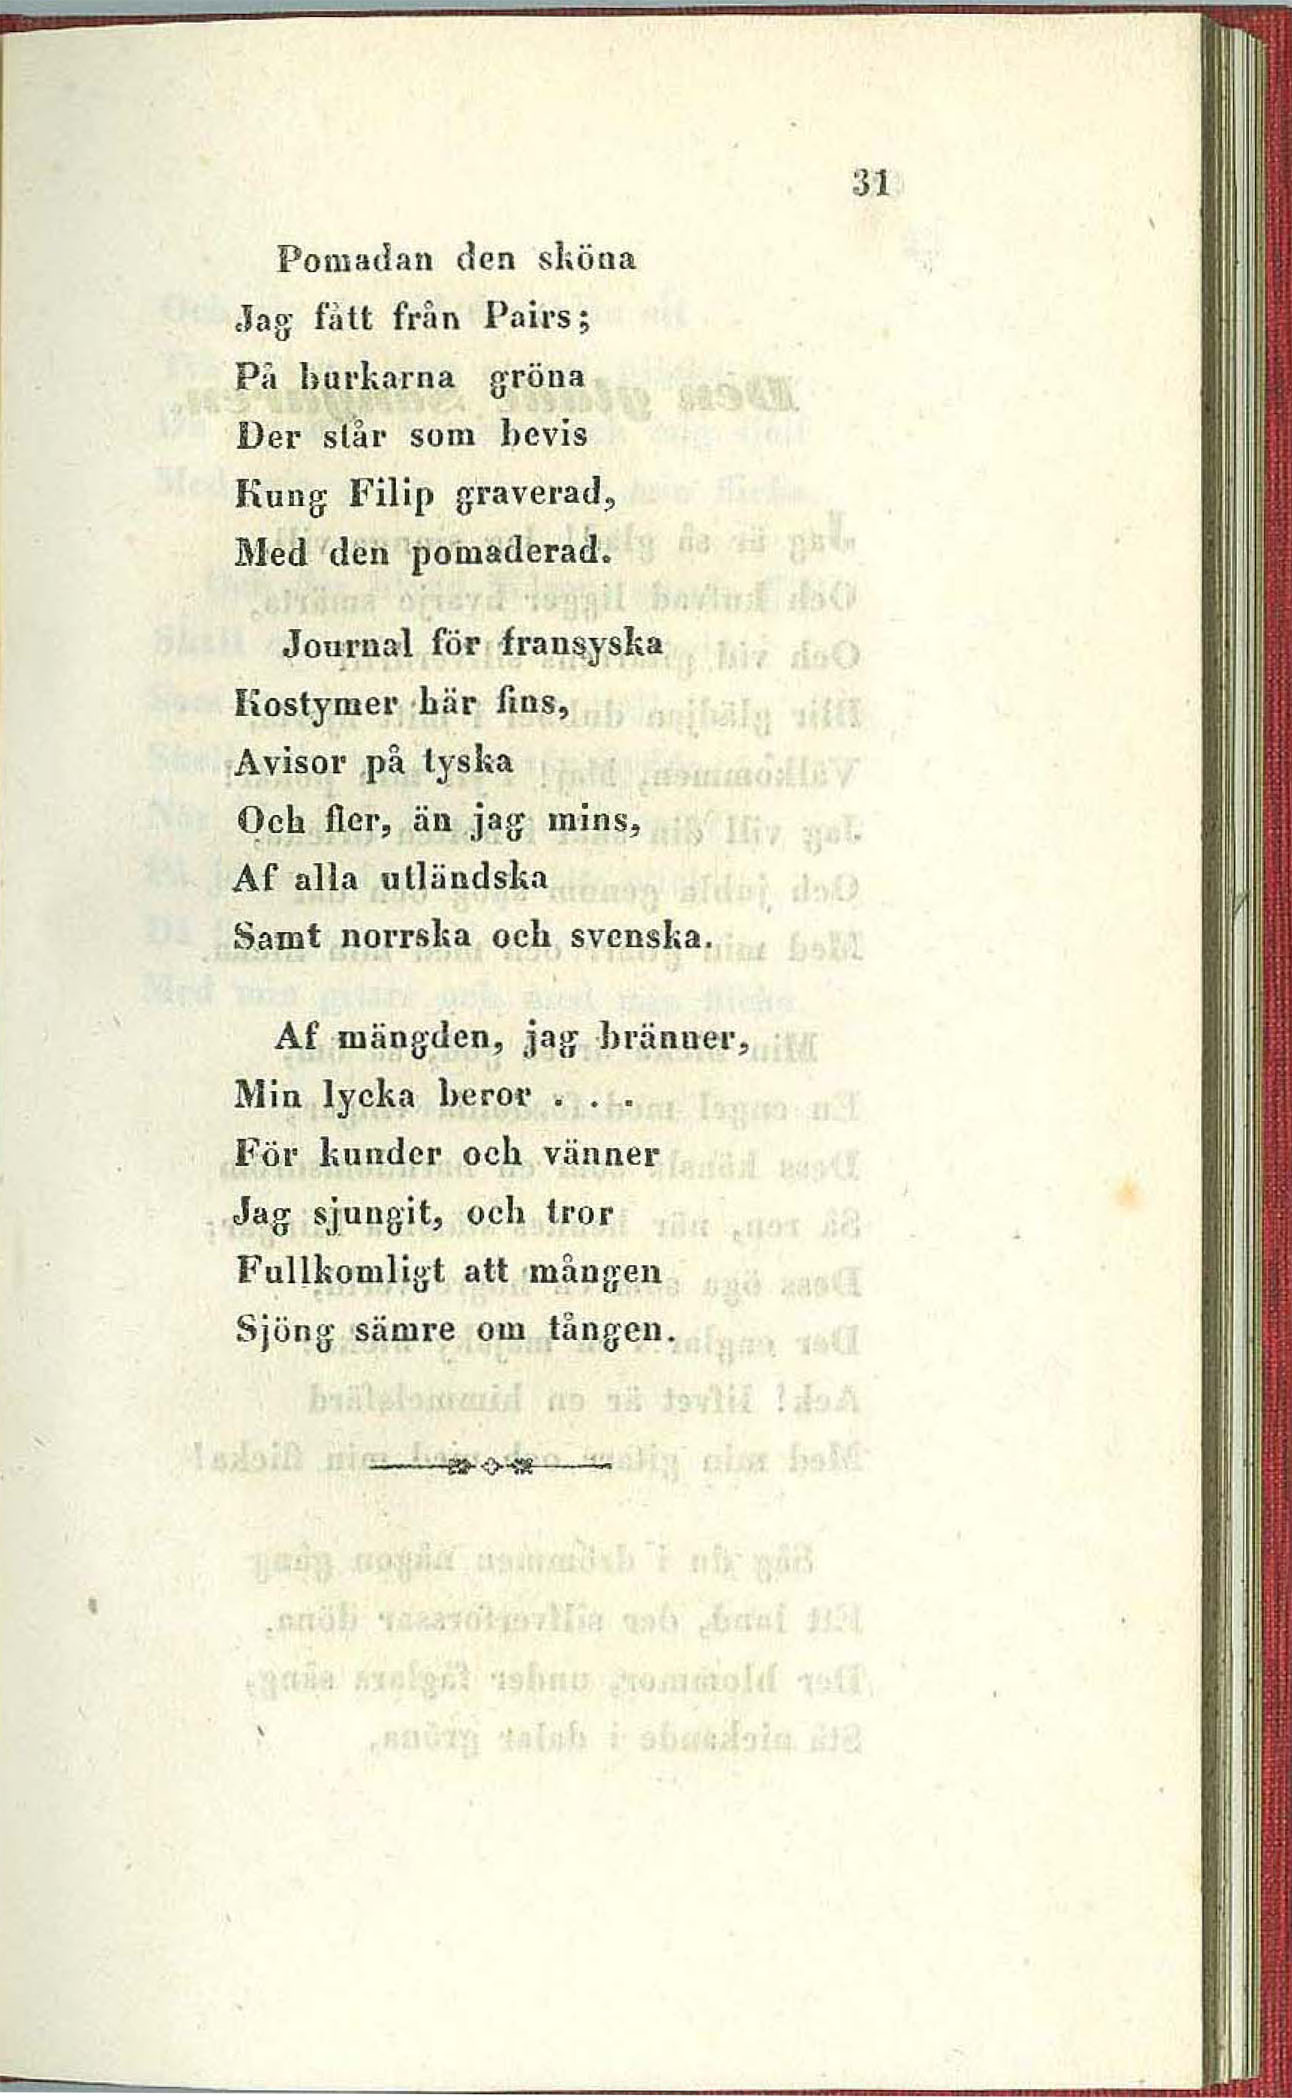 31
Pomadan den sköna
Jag fått från Pairs;
På burkarna gröna
Der står som bevis
Kung Filip graverad,
Med den pomaderad.
Journal för fransyska
Kostymer här fins,
Avisor på tyska
Och fler, än jag mins,
Af alla utländska
Samt norrska och svenska.
Af mängden, jag bränner,
Min lycka beror . . .
För kunder och vänner
Jag sjungit, och tror
Fullkomligt att mången
Sjöng sämre om tången.